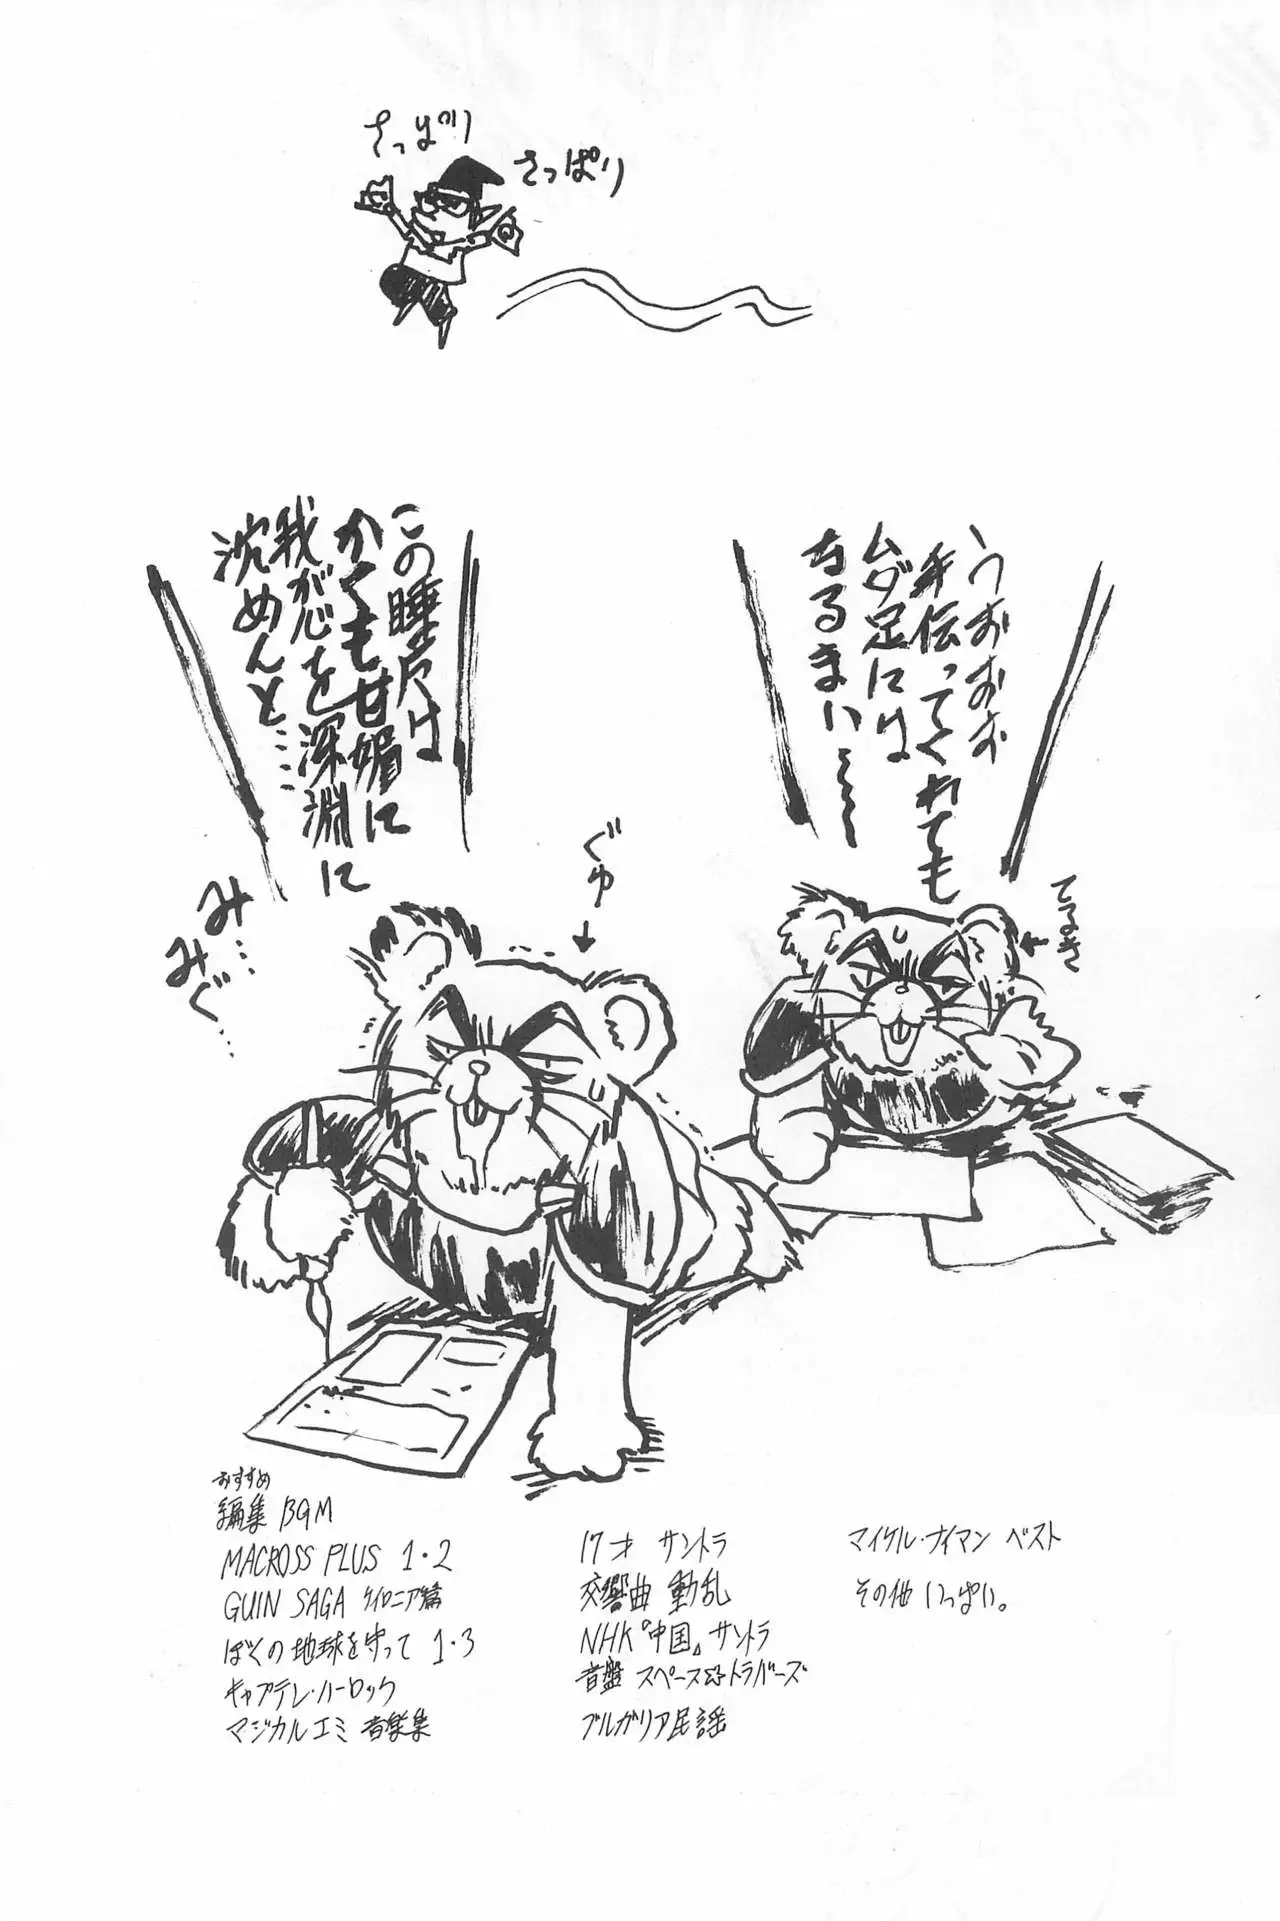 さっぱり
さっぱり
うおおおお
手伝ってくれても
ムダ足には
なるまい〜〜〜
てるき
この睡尺は
かくも甘媚に
我が心を深淵に
沈めんと……
ぐゅ
みみ…
みぐ…
おすすめ
編集 BGM
MACROSS PLUS 1・2
GUIN SAGA ケイロニア篇
ぼくの地球を守って 1・3
キャプテン・ハーロック
マジカルエミ 音楽集
17才 サントラ
交響曲 動乱
NHK『中国』サントラ
音盤 スペース☆トラバーズ
ブルガリア民謡
マイケル・ナイマン ベスト
その他 いっぱい。